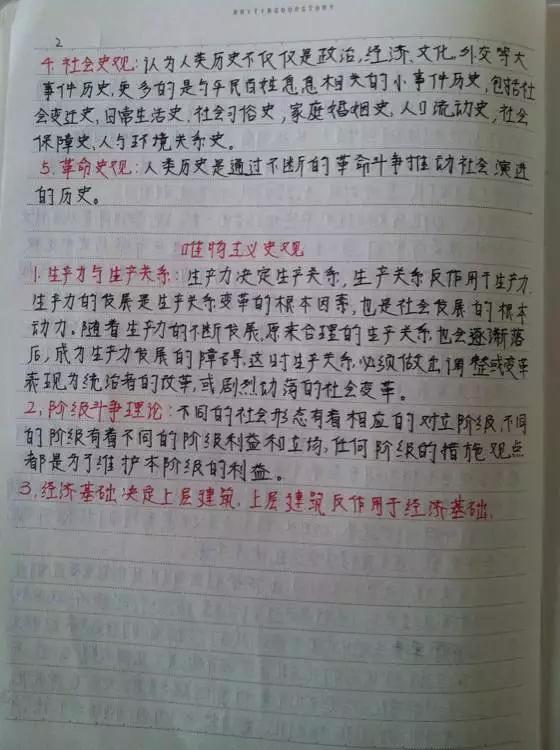 2
4. 社会史观：认为人类历史不仅仅是政治，经济、文化、外交等大
事件历史，更多的是与平民百姓息息相关的小事件历史，包括社
会变迁史，日常生活史、社会习俗史，家庭婚姻史，人口流动史，社会
保障史、人与环境关系史。
5. 革命史观：人类历史是通过不断的革命斗争推动社会演进
的历史。
唯物主义史观
1. 生产力与生产关系：生产力决定生产关系，生产关系反作用于生产力，
生产力的发展是生产关系变革的根本因素，也是社会发展的根本
动力。随着生产力的不断发展，原来合理的生产关系也会逐渐落
后，成为生产力发展的障碍，这时生产关系必须做出调整或变革
表现为统治者的改革，或剧烈动荡的社会变革。
2，阶级斗争理论：不同的社会形态有着相应的对立阶级，不同
的阶级有着不同的阶级利益和立场，任何阶级的措施观点
都是为了维护本阶级的利益。
3，经济基础决定上层建筑，上层建筑反作用于经济基础，